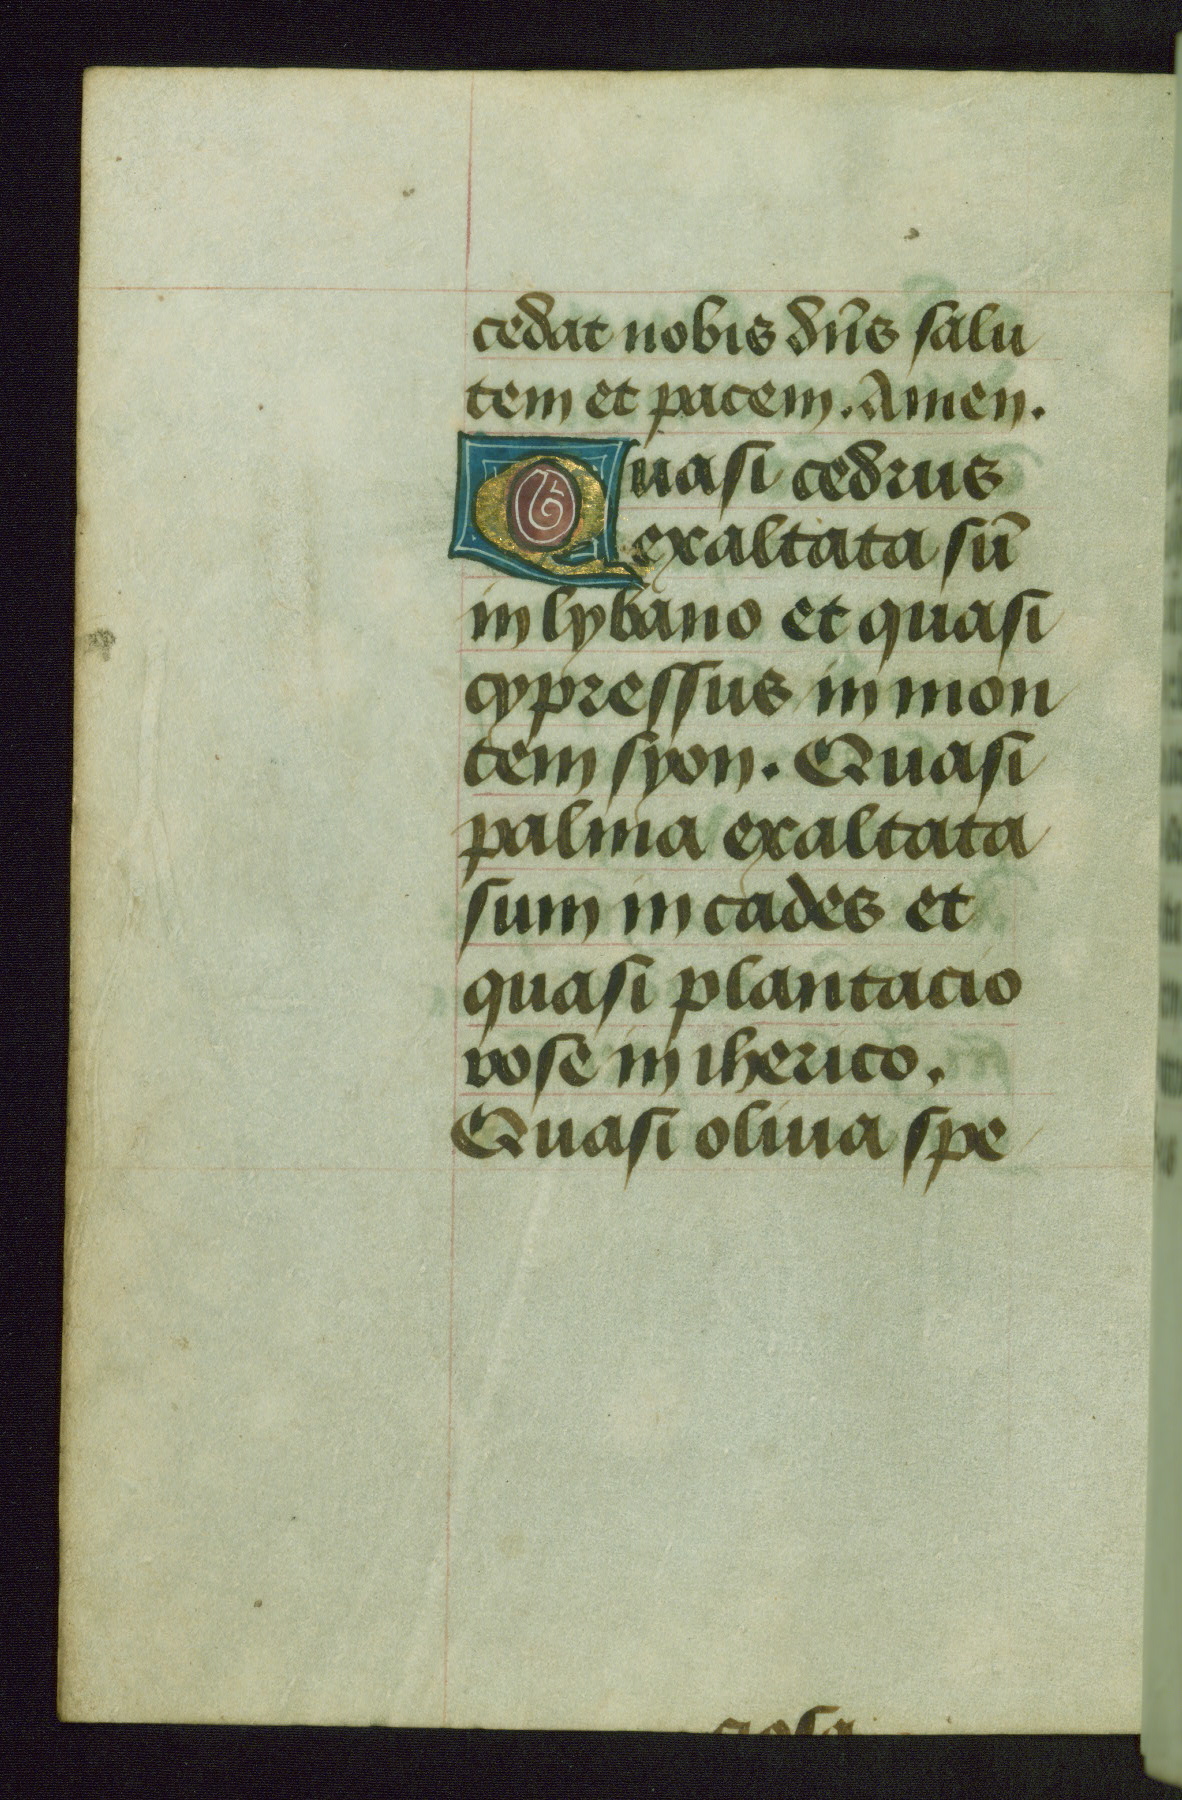 cedat nobis dn̄s salu
tem et pacem. Amen.
Quasi cedrus
exaltata sū
in lybano et quasi
cypressus in mon
tem syon. Quasi
palma exaltata
sum in cades et
quasi plantacio
rose in iherico.
Quasi oliua spe
ciosa